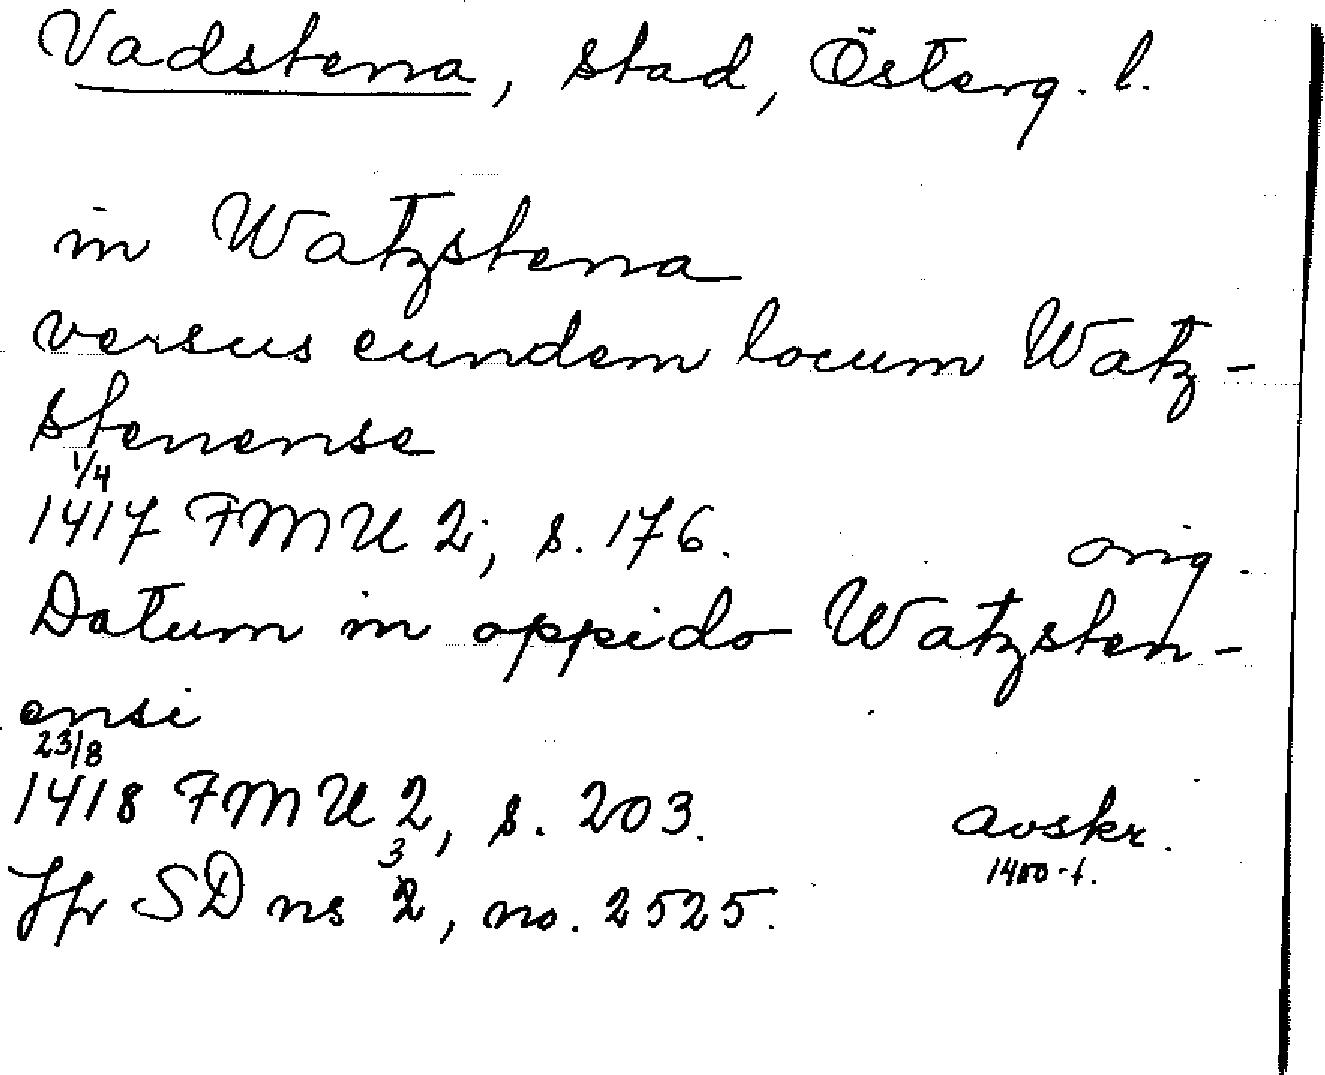 Vadstena, stad, Österg. l.
in Watzstena
versus eundem locum Watz-
stenense
1/4
1417 FMU 2, s. 176. orig.
Datum in oppido Watzsten-
ensi
23/8
1418 FMU 2, s. 203. avskr.
1400-t.
3
Jfr SD ns 2, no. 2525.